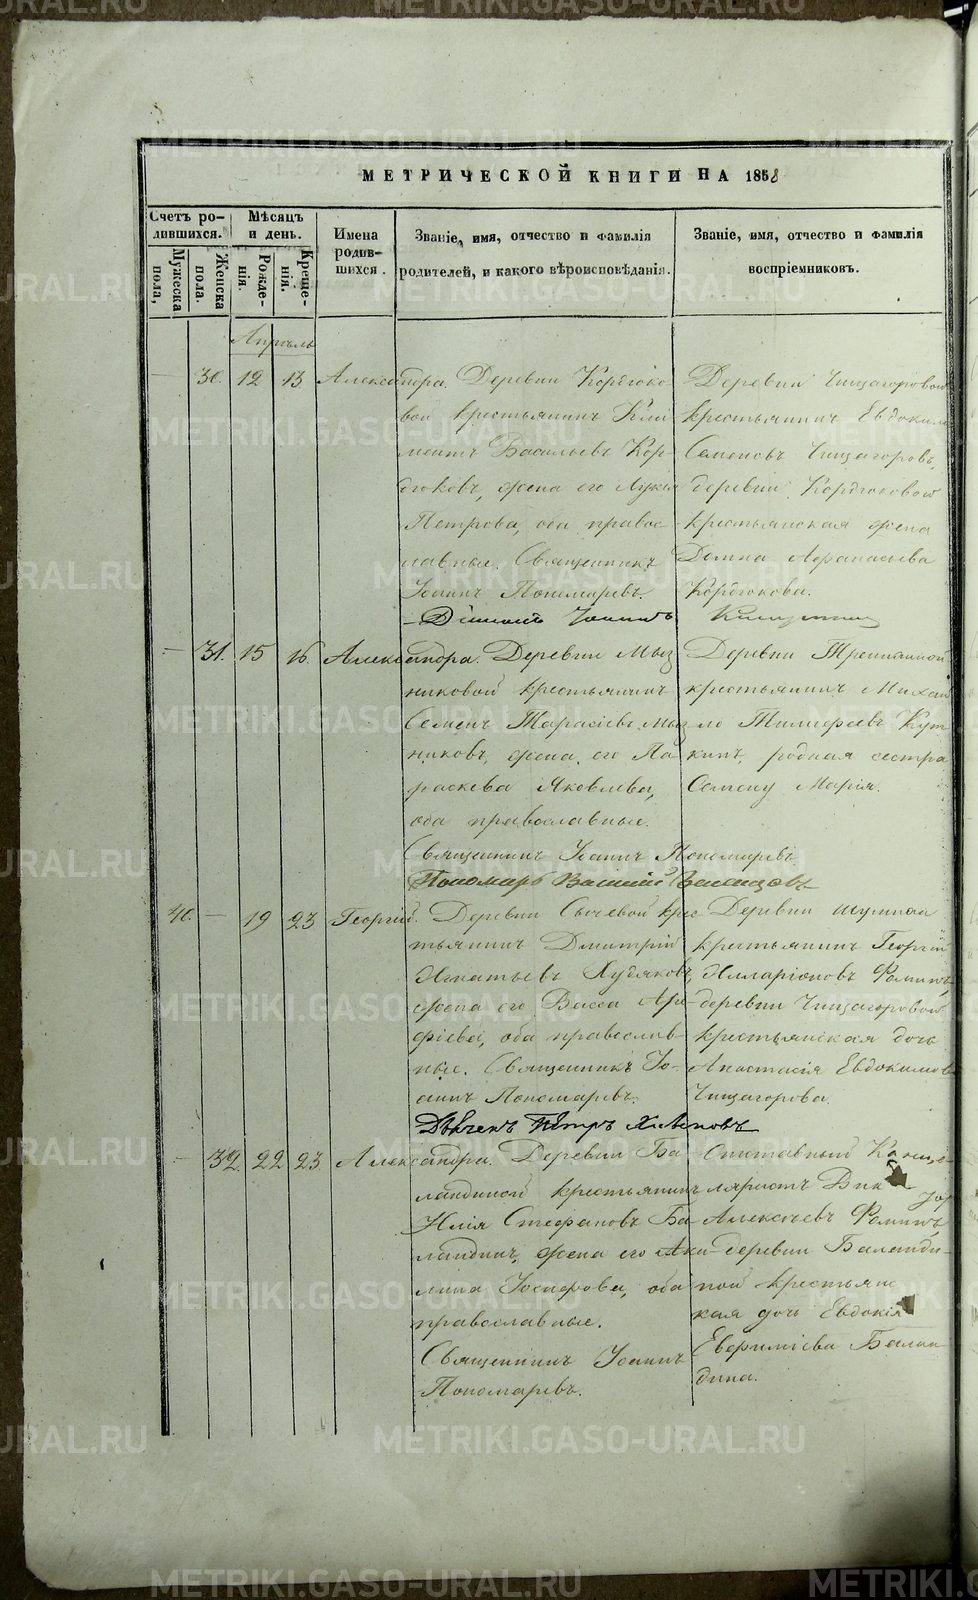 МЕТРИЧЕСКОЙ КНИГИ НА 1858
Счетъ ро-
дившихся.
Мужеска
пола,
Женска
пола.
Мѣсяцъ
и день.
Рожде-
нія.
Креще-
нія.
Имена
родив-
шихся.
Званіе, имя, отчество и фамилія
родителей, и какого вѣроисповѣданія.
Званіе, имя, отчество и фамилія
воспріемниковъ.
Апрѣль
30. 12 13 Александра. Деревни Кордюко-
вой крестьянинъ Кли
ментъ Васильевъ Кор-
дюковъ, жена его Лукія
Петрова, оба правос-
лавные. Священникъ
Іоаннъ Пономаревъ.
Деревни Чищагоровой
крестьянинъ Евдокимъ
Семеновъ Чищагоровъ,
деревни Кордюковой
крестьянская жена
Домна Афанасьева
Кордюкова.
Іоаннъ
31. 15 16 Александра. Деревни Мыз
никовой крестьянинъ
Семенъ Тарасіевъ Мыз
никовъ, жена его Па
раскева Яковлева,
оба православные.
Священникъ Іоаннъ Пономаревъ
Пономарь Василій
Деревни
крестьянинъ Михаи
ло Тимофеевъ Кут
кинъ, родная сестра
Семену Марія.
40. — 19 23 Георгій. Деревни Сычевой крес
тьянинъ Дмитрій
Игнатьевъ Худяковъ,
жена его Васса Аре-
фіева, оба православ-
ные. Священникъ Іо-
аннъ Пономаревъ.
Дьячекъ Петръ Хлѣповъ
Деревни
крестьянинъ Георгій
Илларіоновъ Фоминъ,
деревни Чищагоровой
крестьянская дочь
Анастасія Евдокимова
Чищагорова.
— 32. 22 23 Александра. Деревни Ба
ландиной крестьянинъ
Илія Стефановъ Ба
ландинъ, жена его Аки-
лина Іосифова, оба
православные.
Священникъ Іоаннъ
Пономаревъ.
Алексѣевъ Фоминъ,
деревни Баланди-
ной крестьянс
кая дочь Евдокія
Евфиміева Балан-
дина.
METRIKI.GASO-URAL.RU